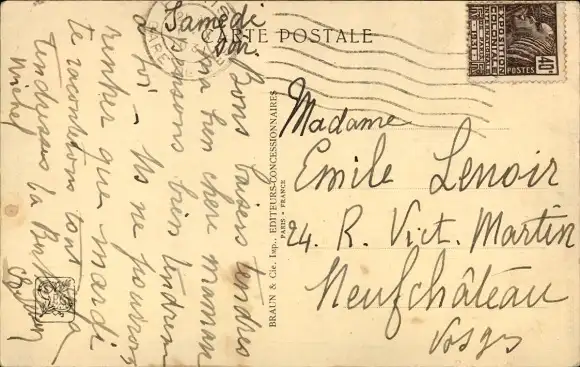 Samedi
soir
CARTE POSTALE
Bons baisers tendres
ma bien chère maman
Pensons bien tendrem
à toi - Ns ne pouvons
rentrer que mardi
te raconterons tout
Tendresses la
Michel
BRAUN & Cie, Imp., EDITEURS-CONCESSIONNAIRES
PARIS - FRANCE
POSTES
40c
Madame
Emile Lenoir
24. R. Vict. Martin
Neufchâteau
Vosges